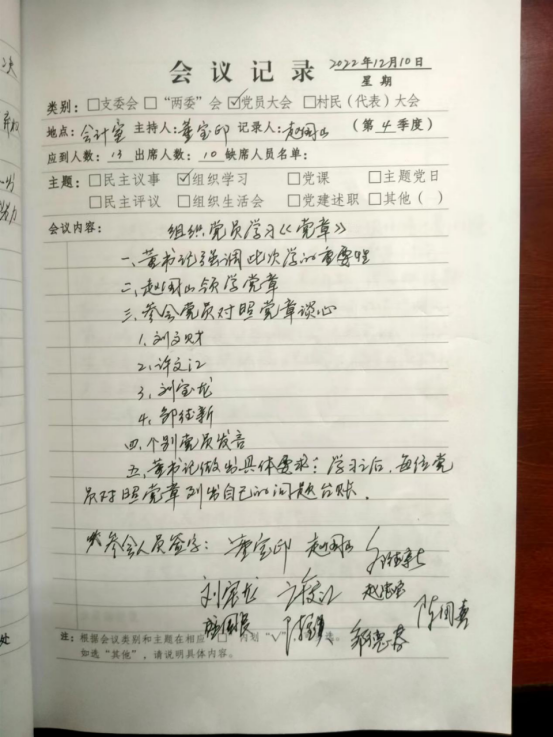 会议记录 2022年12月10日
星期
类别：□支委会 □“两委”会 ☑党员大会 □村民（代表）大会
地点：会计室 主持人：董宝印 记录人：赵国山 （第4季度）
应到人数：13 出席人数：10 缺席人员名单：
主题：□民主议事 ☑组织学习 □党课 □主题党日
□民主评议 □组织生活会 □党建述职 □其他（ ）
会议内容： 组织党员学习《党章》
一、董书记强调此次学的重要性
二、赵国山领学党章
三、参会党员对照党章谈心
1、刘文财
2、许文江
3、刘宝龙
4、邹继新
四、个别党员发言
五、董书记做出具体要求：学习之后，每位党
员对照党章列出自己的问题台账。
参会人员签字：董宝印 赵国山 邹继新
刘宝龙 许文江
陈国喜
注：根据会议类别和主题在相应“□”内划“√”
如选“其他”，请说明具体内容。